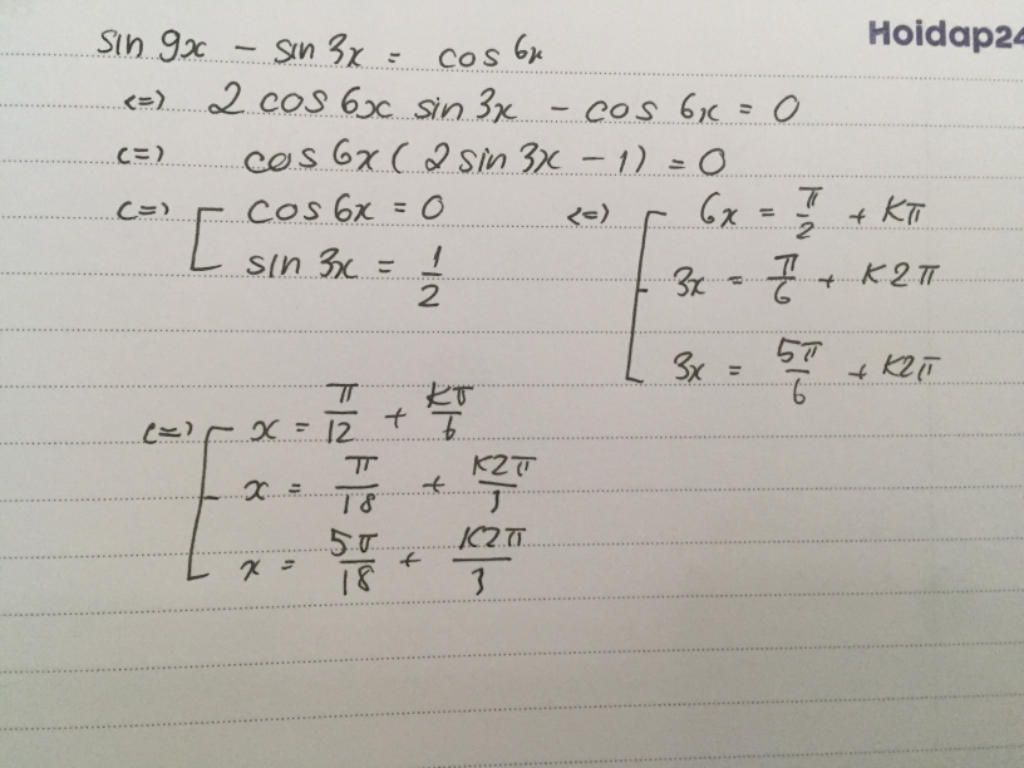 Hoidap24
sin 9x - sin 3x = cos 6x
<=> 2 cos 6x sin 3x - cos 6x = 0
<=> cos 6x ( 2 sin 3x - 1) = 0
<=> [ cos 6x = 0 <=> [ 6x = π/2 + Kπ
sin 3x = 1/2 3x = π/6 + K2π
3x = 5π/6 + K2π
<=> [ x = π/12 + Kπ/6
x = π/18 + K2π/3
x = 5π/18 + K2π/3